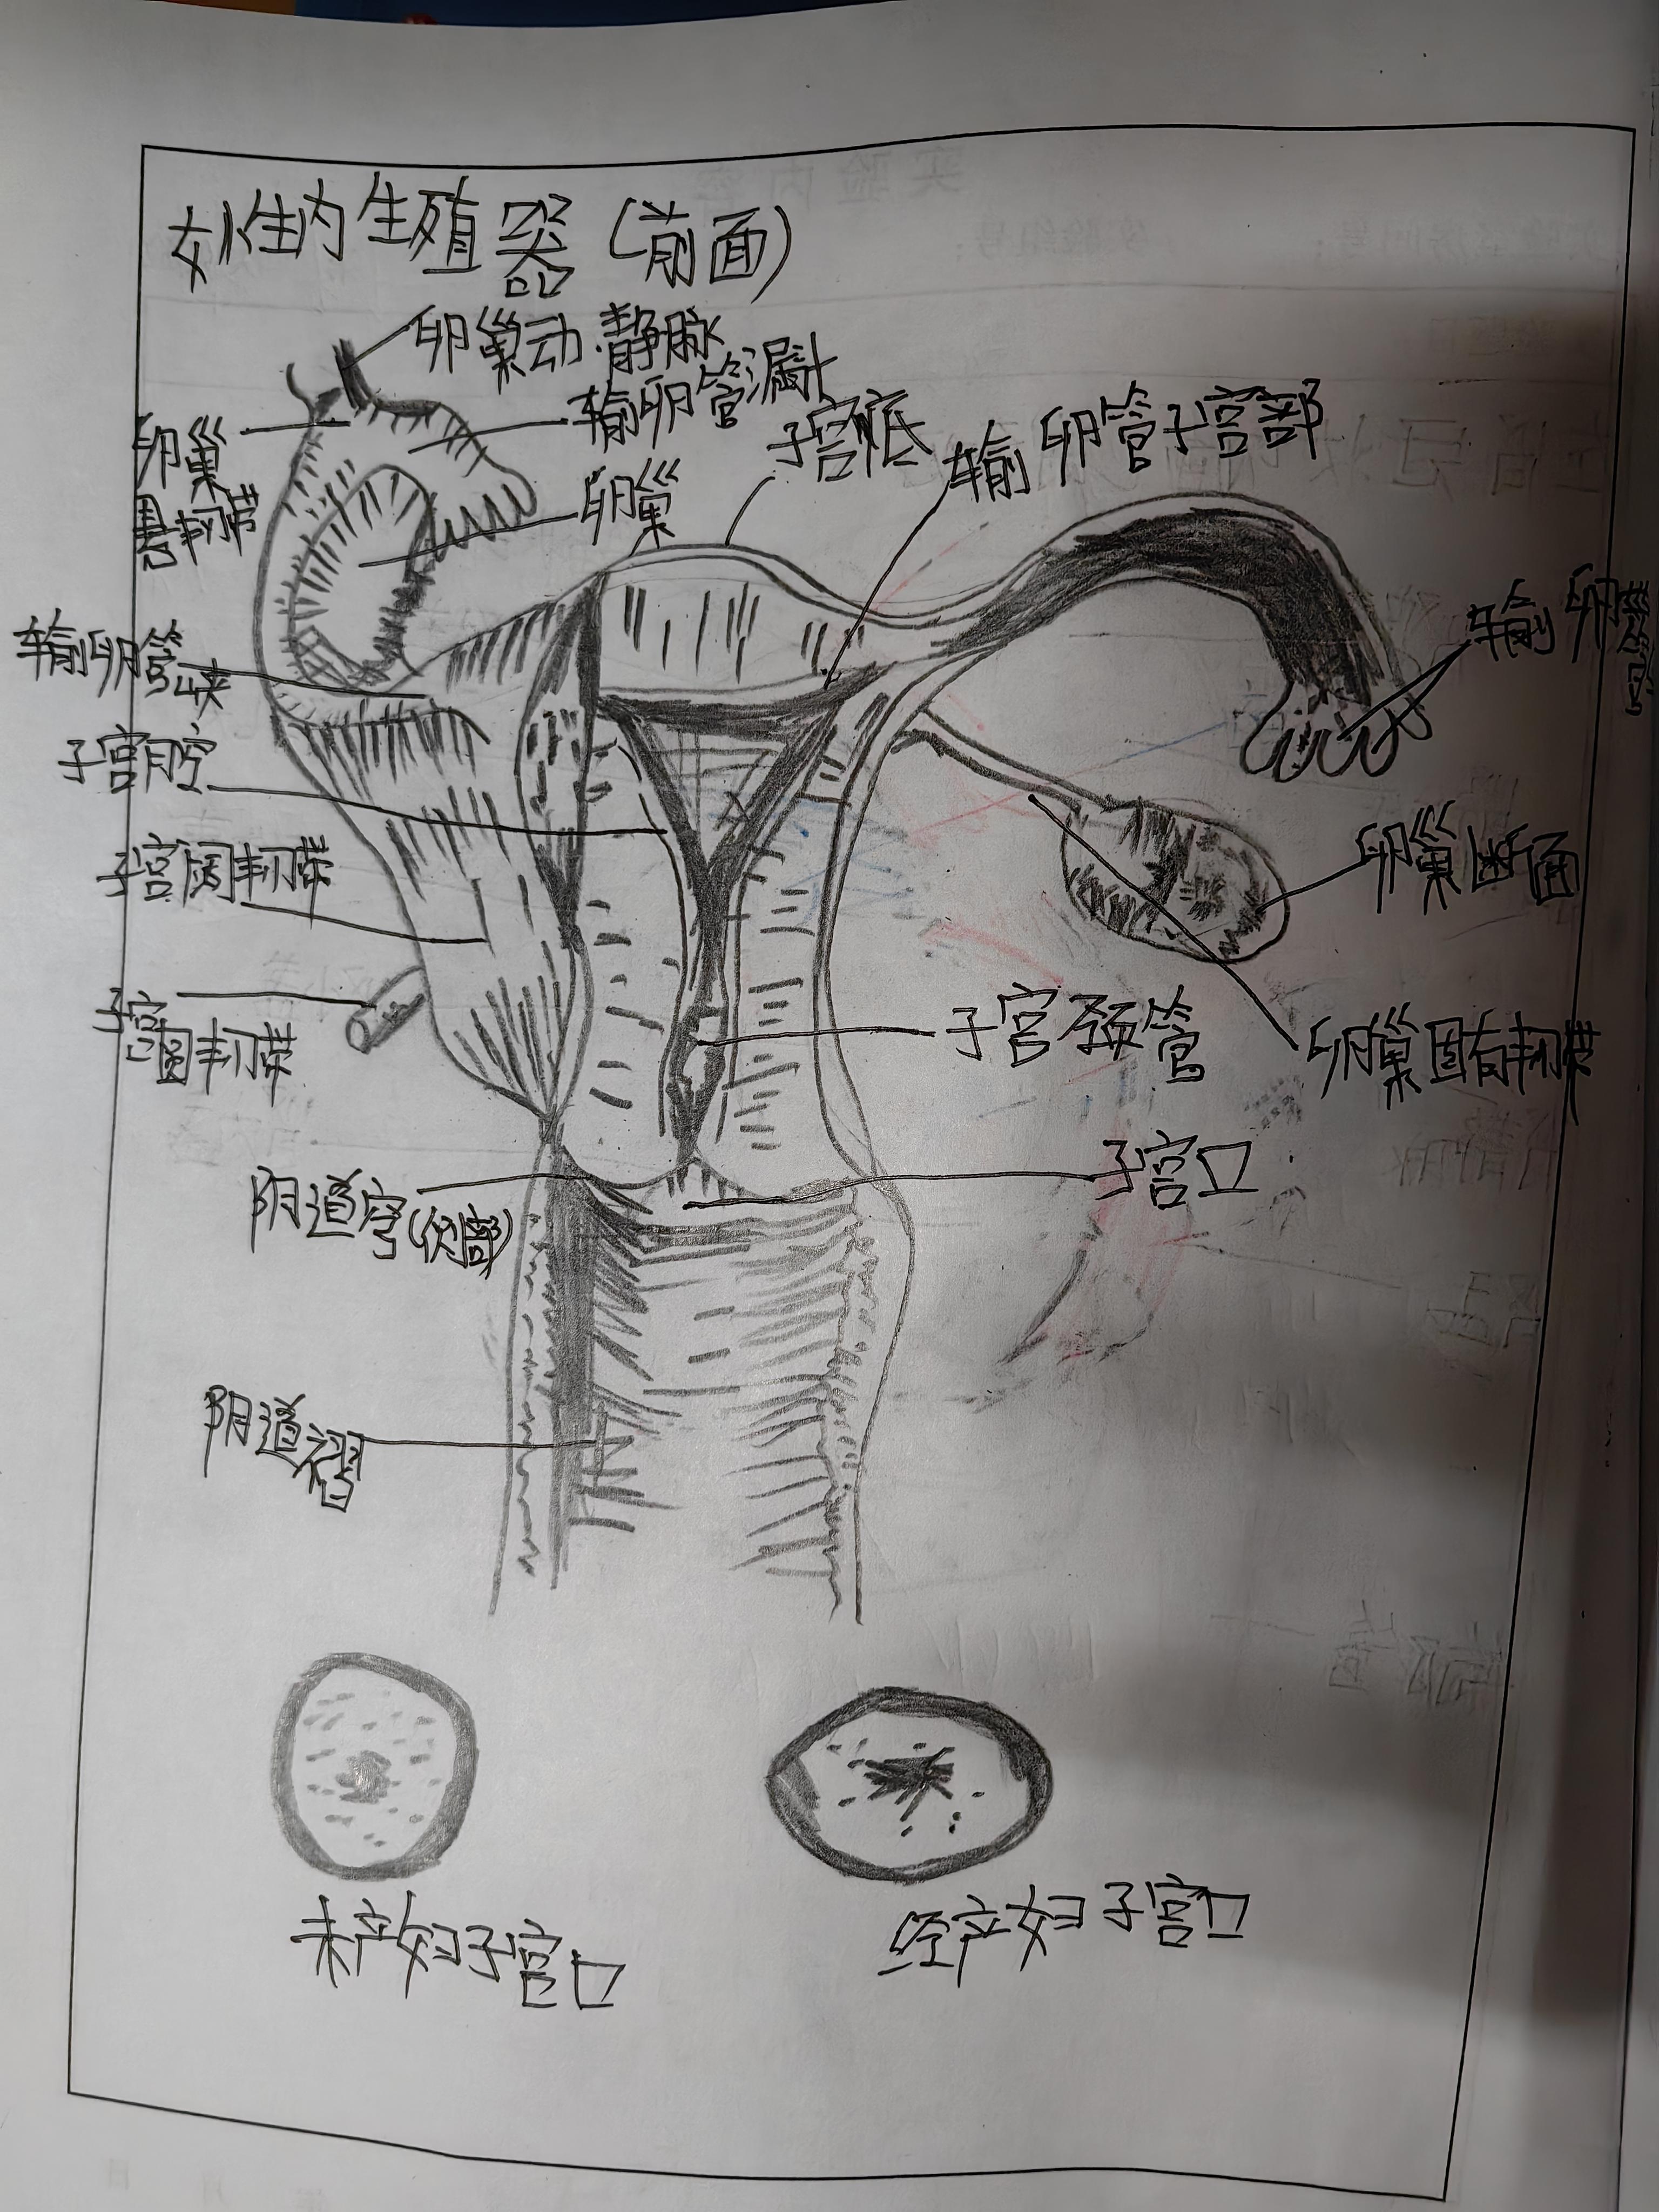 女性内生殖器(前面)
卵巢动.静脉
输卵管漏斗
子宫底
输卵管子宫部
卵巢
悬韧带
卵巢
输卵管
输卵管峡
子宫腔
卵巢断面
子宫阔韧带
子宫
圆韧带
子宫颈管
卵巢固有韧带
子宫口
阴道穹(侧部)
阴道褶
未产妇子宫口
经产妇子宫口